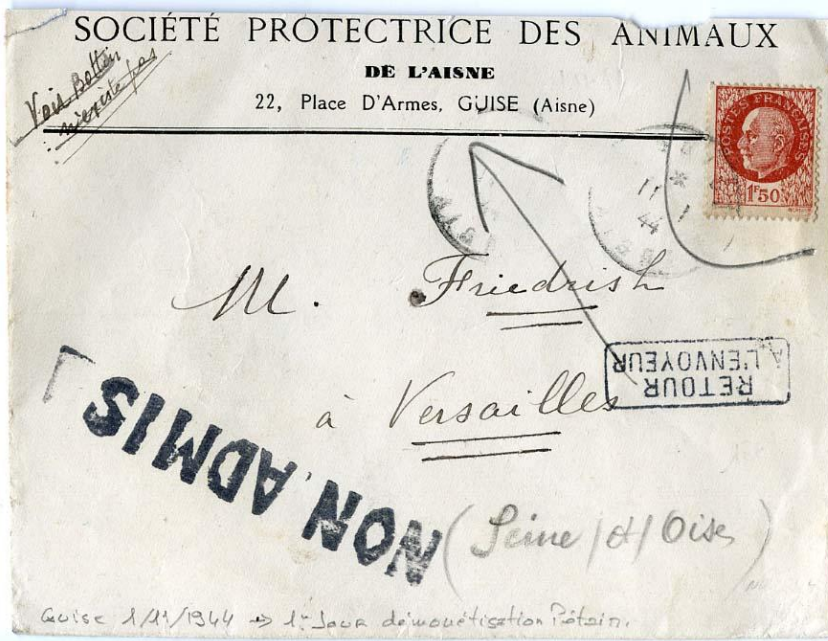 SOCIÉTÉ PROTECTRICE DES ANIMAUX
DE L'AISNE
22, Place D'Armes, GUISE (Aisne)
Voir Bottin
n'existe pas
POSTES FRANÇAISES
1F50
11
1
44
M. Friedrish
RETOUR
À L'ENVOYEUR
à Versailles
NON ADMIS
(Seine /et/ Oise)
Guise 1/11/1944 → 1er Jour démonétisation Pétain.